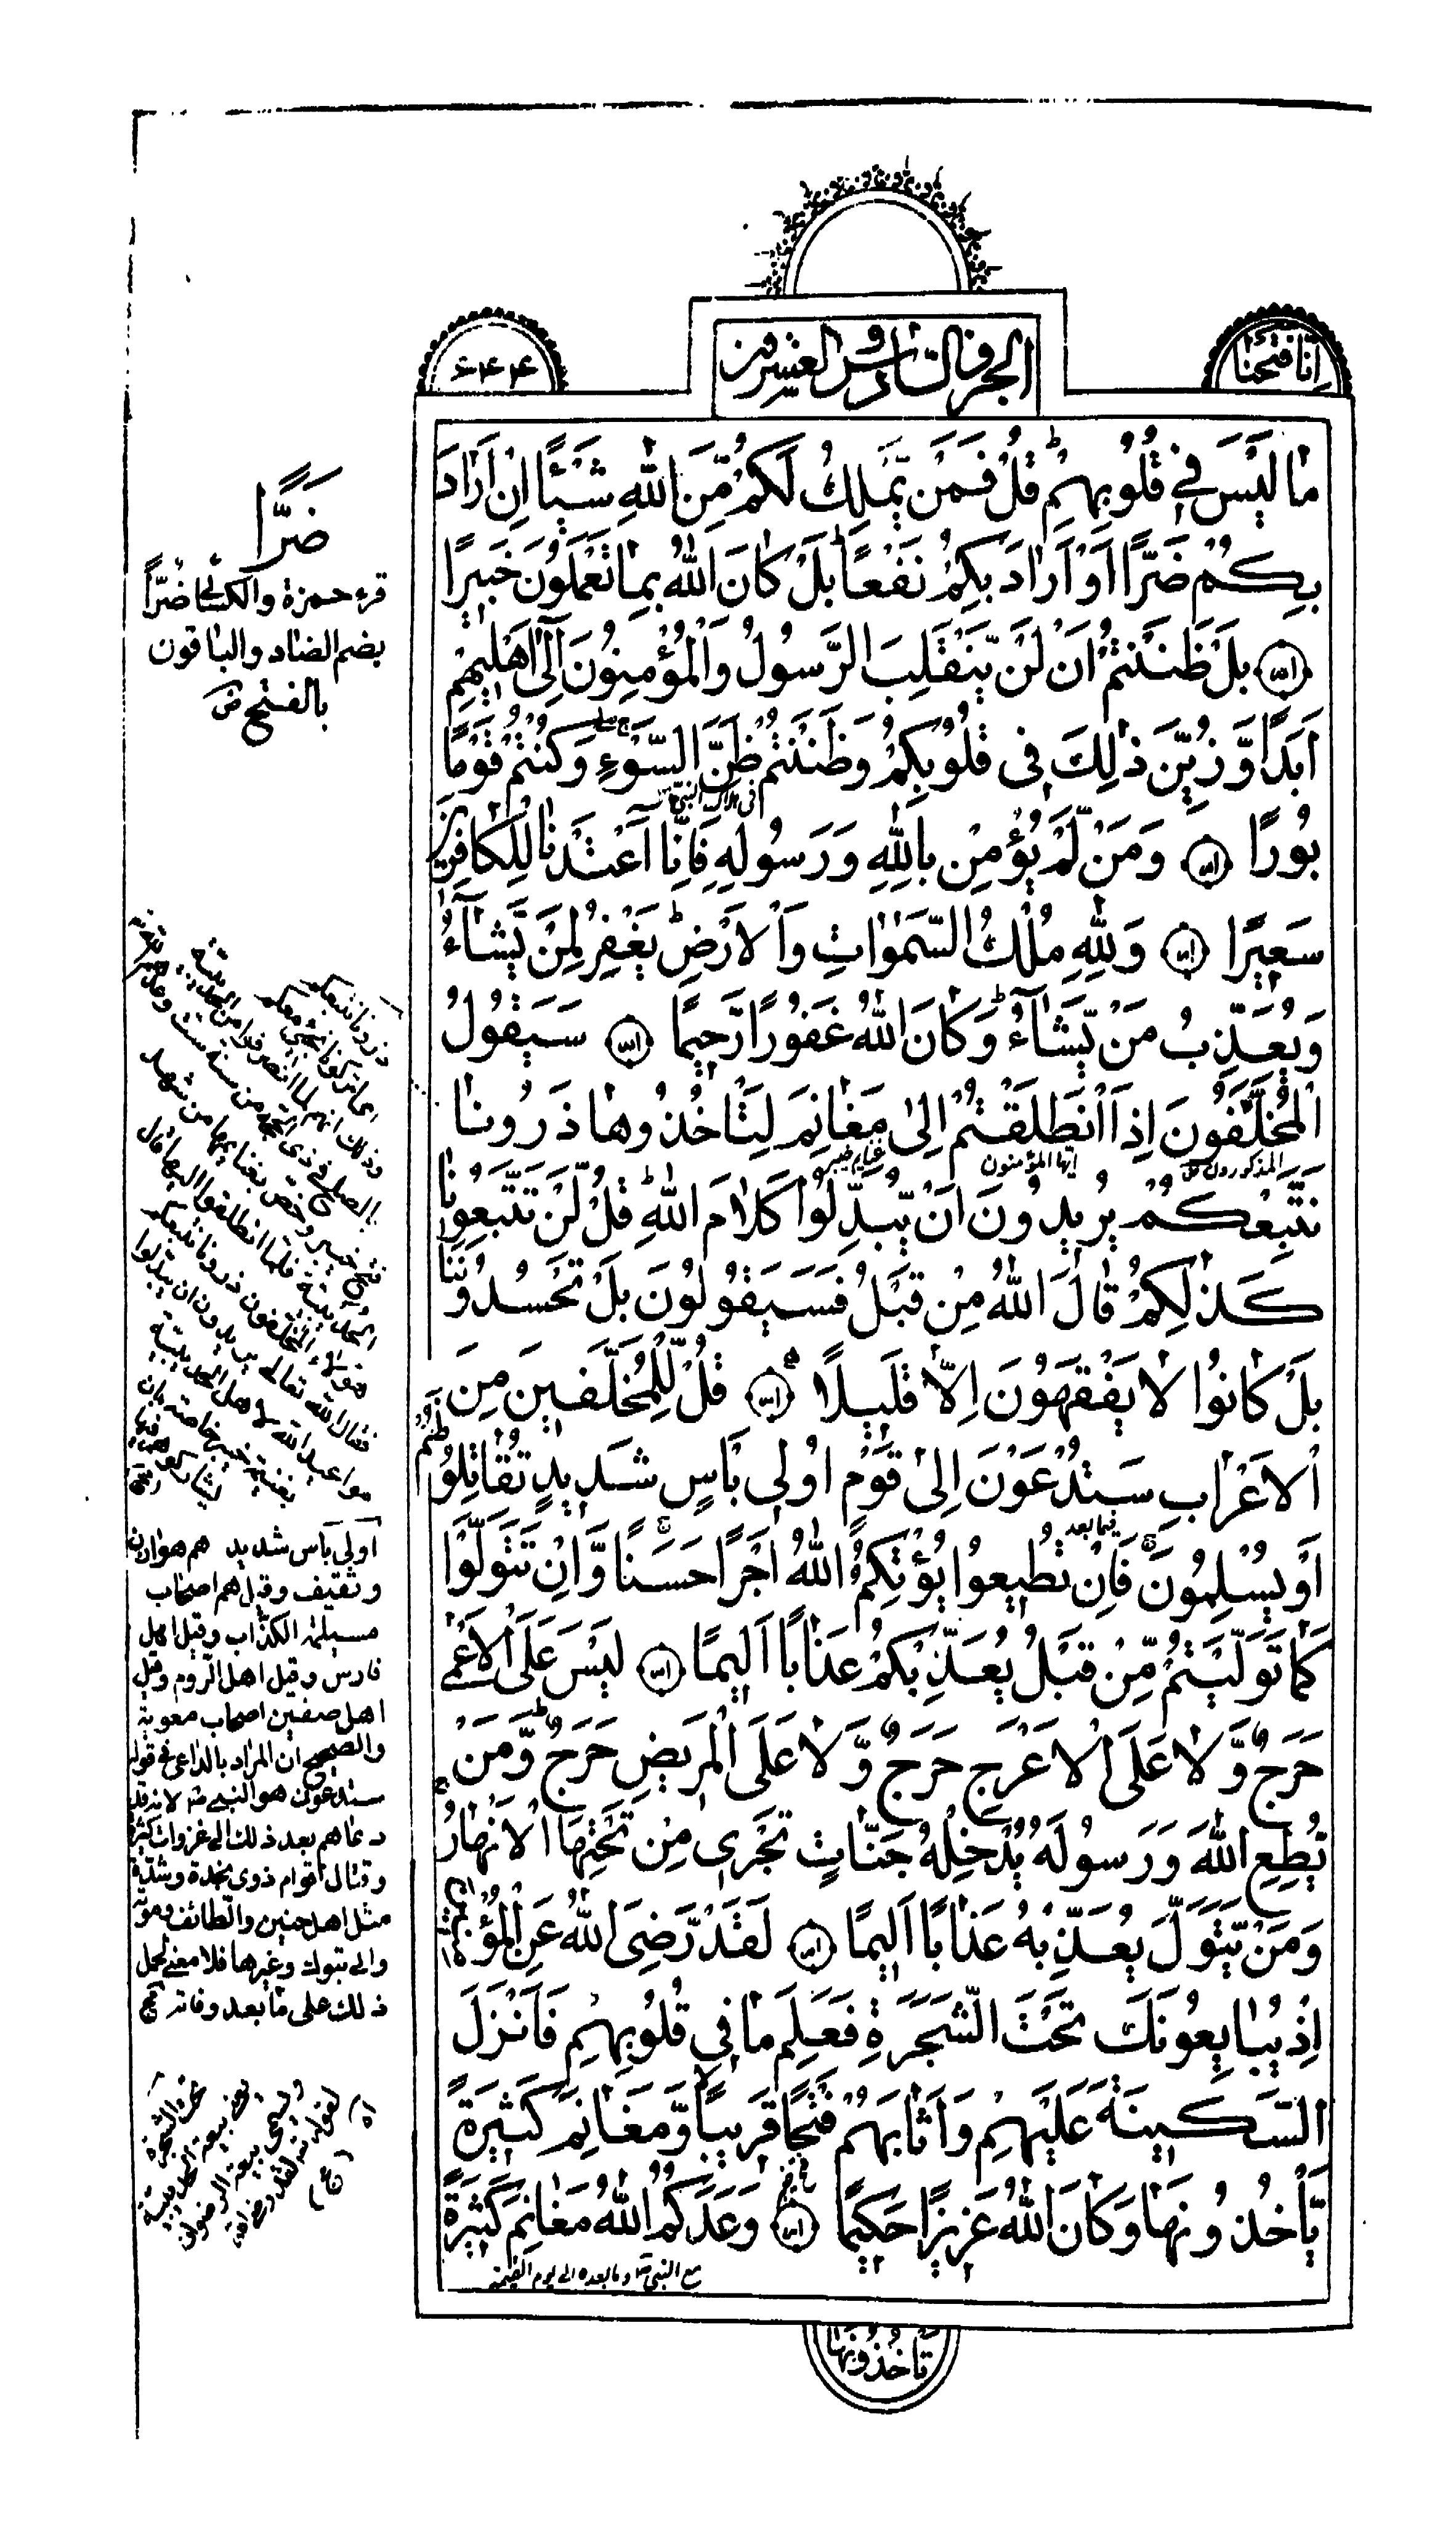 اِنّا فتحنا
الجزء السّادس و العشرون
٦٤٤
مٰا لَيْسَ فِي قُلُوبِهِمْ ط قُلْ فَمَنْ يَّمْلِكُ لَكُمْ مِّنَ اللّٰهِ شَيْئًا اِنْ اَرٰادَ
بِكُمْ ضَرًّا اَوْ اَرٰادَ بِكُمْ نَفْعًا ط بَلْ كٰانَ اللّٰهُ بِمٰا تَعْمَلُونَ خَبِيرًا
بَلْ ظَنَنْتُمْ اَنْ لَنْ يَّنْقَلِبَ الرَّسُولُ وَالْمُؤْمِنُونَ اِلٰٓى اَهْلِيهِمْ
اَبَدًا وَّ زُيِّنَ ذٰلِكَ فِى قُلُوبِكُمْ وَظَنَنْتُمْ ظَنَّ السَّوْءِ وَكُنْتُمْ قَوْمًا
بُورًا وَمَنْ لَّمْ يُؤْمِنْ بِاللّٰهِ وَرَسُولِهِ فَاِنّٰٓا اَعْتَدْنٰا لِلْكٰافِرِينَ
سَعِيرًا وَلِلّٰهِ مُلْكُ السَّمٰوٰاتِ وَالْاَرْضِ ط يَغْفِرُ لِمَنْ يَّشٰٓاءُ
وَيُعَذِّبُ مَنْ يَّشٰٓاءُ ط وَكٰانَ اللّٰهُ غَفُورًا رَّحِيمًا سَيَقُولُ
الْمُخَلَّفُونَ اِذَا انْطَلَقْتُمْ اِلىٰ مَغٰانِمَ لِتَأْخُذُوهٰا ذَرُونٰا
المذكورون ايّها المؤمنون غنايم خيبر
نَتَّبِعْكُمْ يُرِيدُونَ اَنْ يُّبَدِّلُوا كَلٰامَ اللّٰهِ ط قُلْ لَنْ تَتَّبِعُونٰا
كَذٰلِكُمْ قٰالَ اللّٰهُ مِنْ قَبْلُ فَسَيَقُولُونَ بَلْ تَحْسُدُونَنٰا
بَلْ كٰانُوا لٰا يَفْقَهُونَ اِلّٰا قَلِيلًا قُلْ لِّلْمُخَلَّفِينَ مِنَ
الْاَعْرٰابِ سَتُدْعَوْنَ اِلىٰ قَوْمٍ اُولِى بَأْسٍ شَدِيدٍ تُقٰاتِلُونَهُمْ
اَوْ يُسْلِمُونَ فَاِنْ تُطِيعُوا يُؤْتِكُمُ اللّٰهُ اَجْرًا حَسَنًا وَّاِنْ تَتَوَلَّوْا
كَمٰا تَوَلَّيْتُمْ مِّنْ قَبْلُ يُعَذِّبْكُمْ عَذٰابًا اَلِيمًا لَيْسَ عَلَى الْاَعْمىٰ
حَرَجٌ وَّ لٰا عَلَى الْاَعْرَجِ حَرَجٌ وَّ لٰا عَلَى الْمَرِيضِ حَرَجٌ ط وَّمَنْ
يُطِعِ اللّٰهَ وَرَسُولَهُ يُدْخِلْهُ جَنّٰاتٍ تَجْرِى مِنْ تَحْتِهَا الْاَنْهٰارُ
وَمَنْ يَّتَوَلَّ يُعَذِّبْهُ عَذٰابًا اَلِيمًا لَقَدْ رَّضِىَ اللّٰهُ عَنِ الْمُؤْمِنِينَ
اِذْ يُبٰايِعُونَكَ تَحْتَ الشَّجَرَةِ فَعَلِمَ مٰا فِى قُلُوبِهِمْ فَاَنْزَلَ
السَّكِينَةَ عَلَيْهِمْ وَاَثٰابَهُمْ فَتْحًا قَرِيبًا وَّمَغٰانِمَ كَثِيرَةً
يَّأْخُذُونَهٰا وَكٰانَ اللّٰهُ عَزِيزًا حَكِيمًا وَعَدَكُمُ اللّٰهُ مَغٰانِمَ كَثِيرَةً
مع النبى ص و ما بعده الى يوم القيمة
تأخذونها
ضَرًّا
قرء حمزة والكسائى ضُرًّا
بضم الضاد والباقون
بالفتح
ذرونا نتبعكم
اى اتركونا نجىء معكم
وذلك انهم لما انصرفوا من الحديبية
فتح خيبر وخص بغنايمها من شهد
الحديبية فلما انطلقوا اليها قال
هؤلاء المخلفون ذرونا نتبعكم
فقال الله تعالى يريدون ان يبدلوا
مواعيد الله لاهل الحديبية
بغنيمة خيبر خاصة
اولى بأس شديد هم هوازن
وثقيف وقيل هم اصحاب
مسيلمة الكذّاب وقيل اهل
فارس وقيل اهل الروم وقيل
اهل صفين اصحاب معوية
والصحيح ان المراد بالداعى فى قوله
ستدعون هو النبى ص لانه قد
دعاهم بعد ذلك الى غزوات كثيرة
وقتال اقوام ذوى نجدة وشدّة
مثل اهل حنين والطائف وموتة
والى تبوك وغيرها فلا معنى لحمل
ذلك على ما بعد وفاته